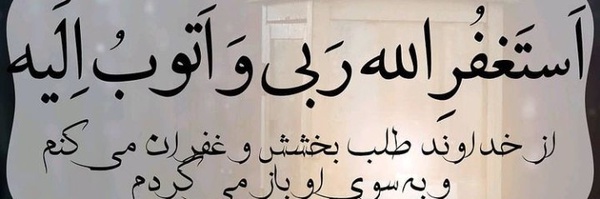 اَستَغفُرِ الله رَبی وَ اَتوبُ اِلَیه
از خداوند طلب بخشش و غفران می کنم
و به سوی او باز می گردم